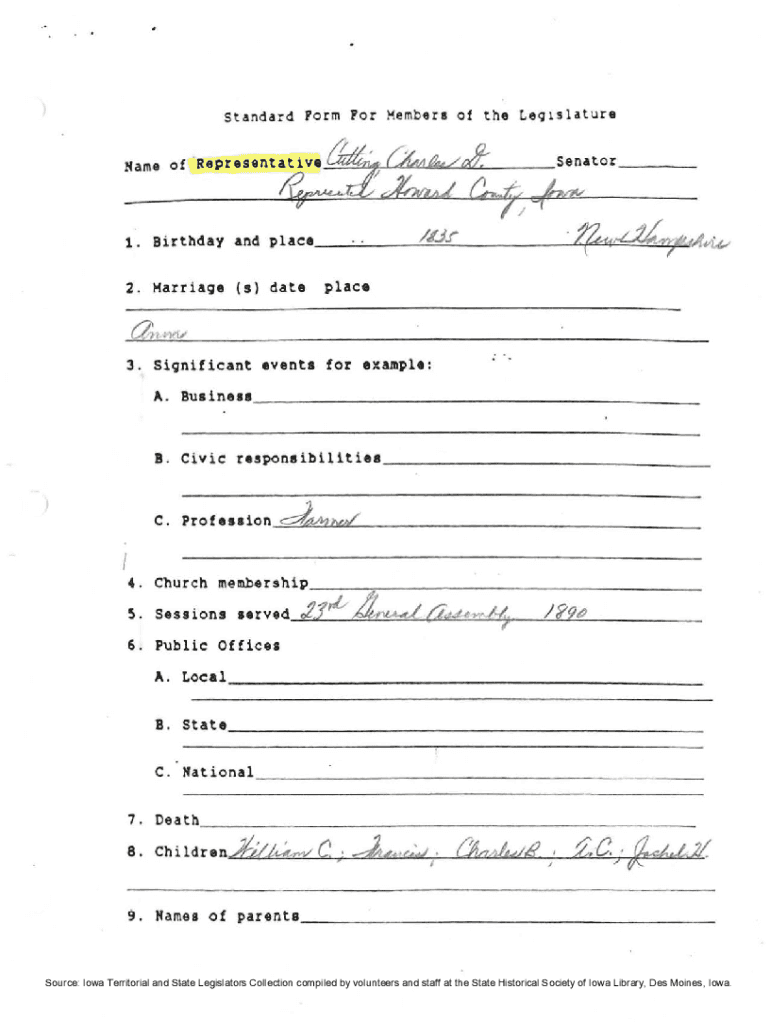 Standard Form For Members of the Legislature
Name of Representative Cutting, Charles D. Senator
Represented Howard County, Iowa
1. Birthday and place 1835 New Hampshire
2. Marriage (s) date place
Anna
3. Significant events for example:
A. Business
B. Civic responsibilities
C. Profession Farmer
4. Church membership
5. Sessions served 23rd General Assembly 1890
6. Public Offices
A. Local
B. State
C. National
7. Death
8. Children William C.; Francis; Charles B.; T.C.; H.
9. Names of parents
Source: Iowa Territorial and State Legislators Collection compiled by volunteers and staff at the State Historical Society of Iowa Library, Des Moines, Iowa.